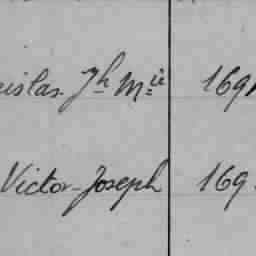 islas Jh Mie 169
Victor-Joseph 169